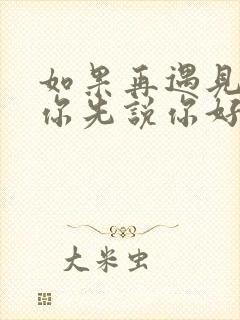 如果再遇见
你先说你好
大米虫